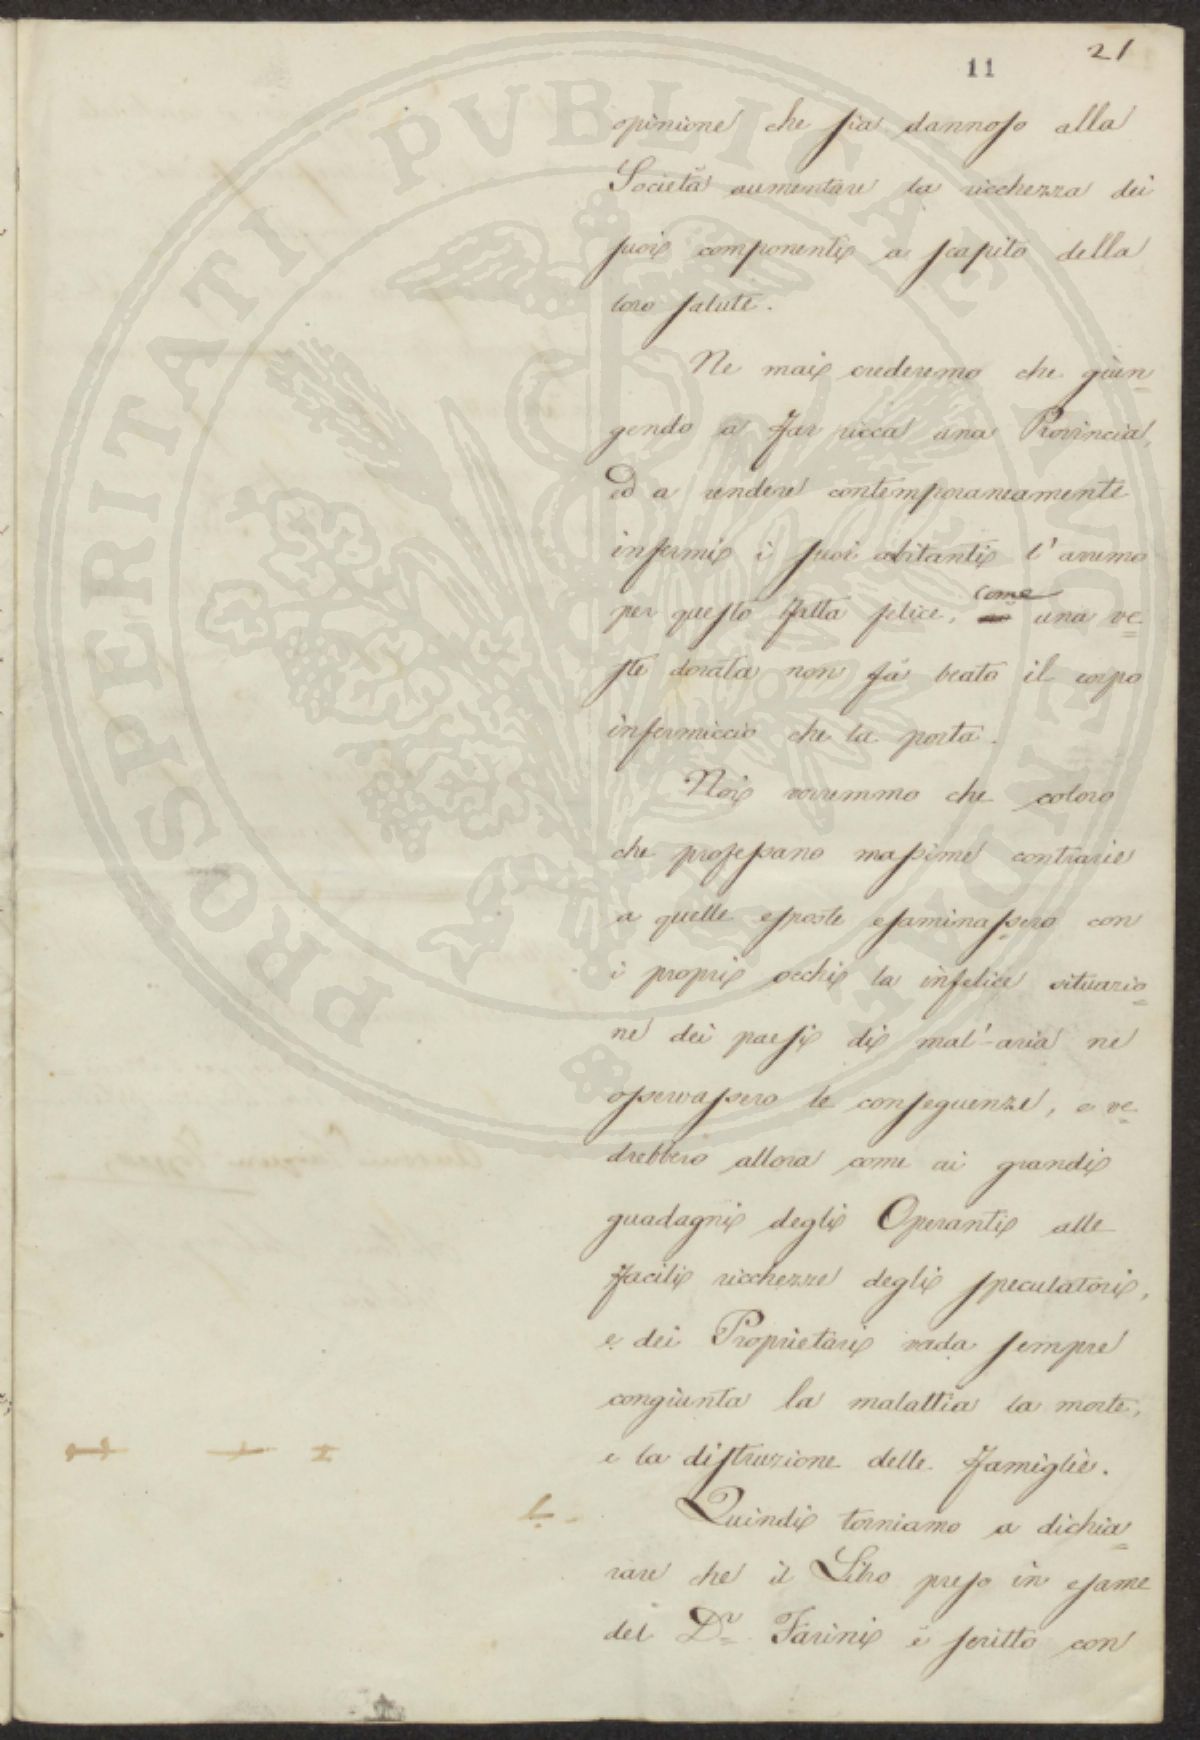 11
21
opinione che sia dannoso alla
Società aumentare la ricchezza dei
suoi componenti a scapito della
loro salute.
Ne mai crederemo che giun=
gendo a far ricca una Provincia,
ed a rendere contemporaneamente
infermi i suoi abitanti l'avremo
per questo fatta felice, come una ve=
ste dorata non fà beato il corpo
infermiccio che la porta.
Noi vorremmo che coloro
che professano massime contrarie
a quelle esposte esaminassero con
i propri occhi la infelice situazio=
ne dei paesi di mal'-aria ne
osservassero le conseguenze, e ve=
drebbero allora come ai grandi
guadagni degli Operanti alle
facili ricchezze degli speculatori,
e dei Proprietari vada sempre
congiunta la malattia la morte,
e la distruzione delle famiglie.
Quindi torniamo a dichia=
rare che il Libro preso in esame
del Dr. Farini è scritto con
PROSPERITATI PVBLICAE AVGENDAE